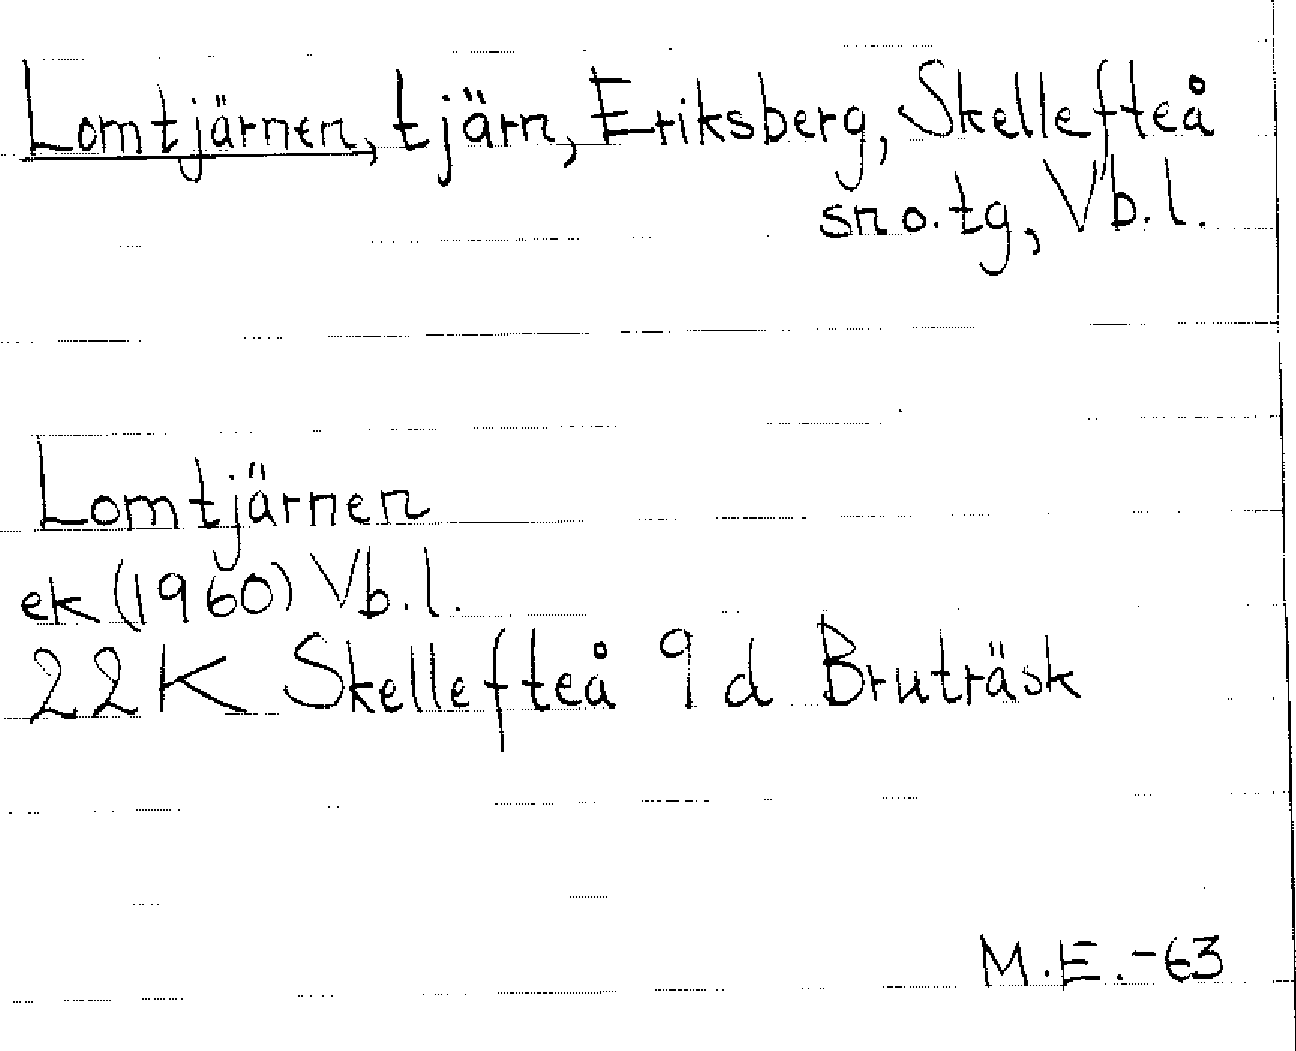 Lomtjärnen, tjärn, Eriksberg, Skellefteå
sn o. tg, Vb. l.
Lomtjärnen
ek (1960) Vb. l.
22K Skellefteå 9 d Bruträsk
M.E.-63